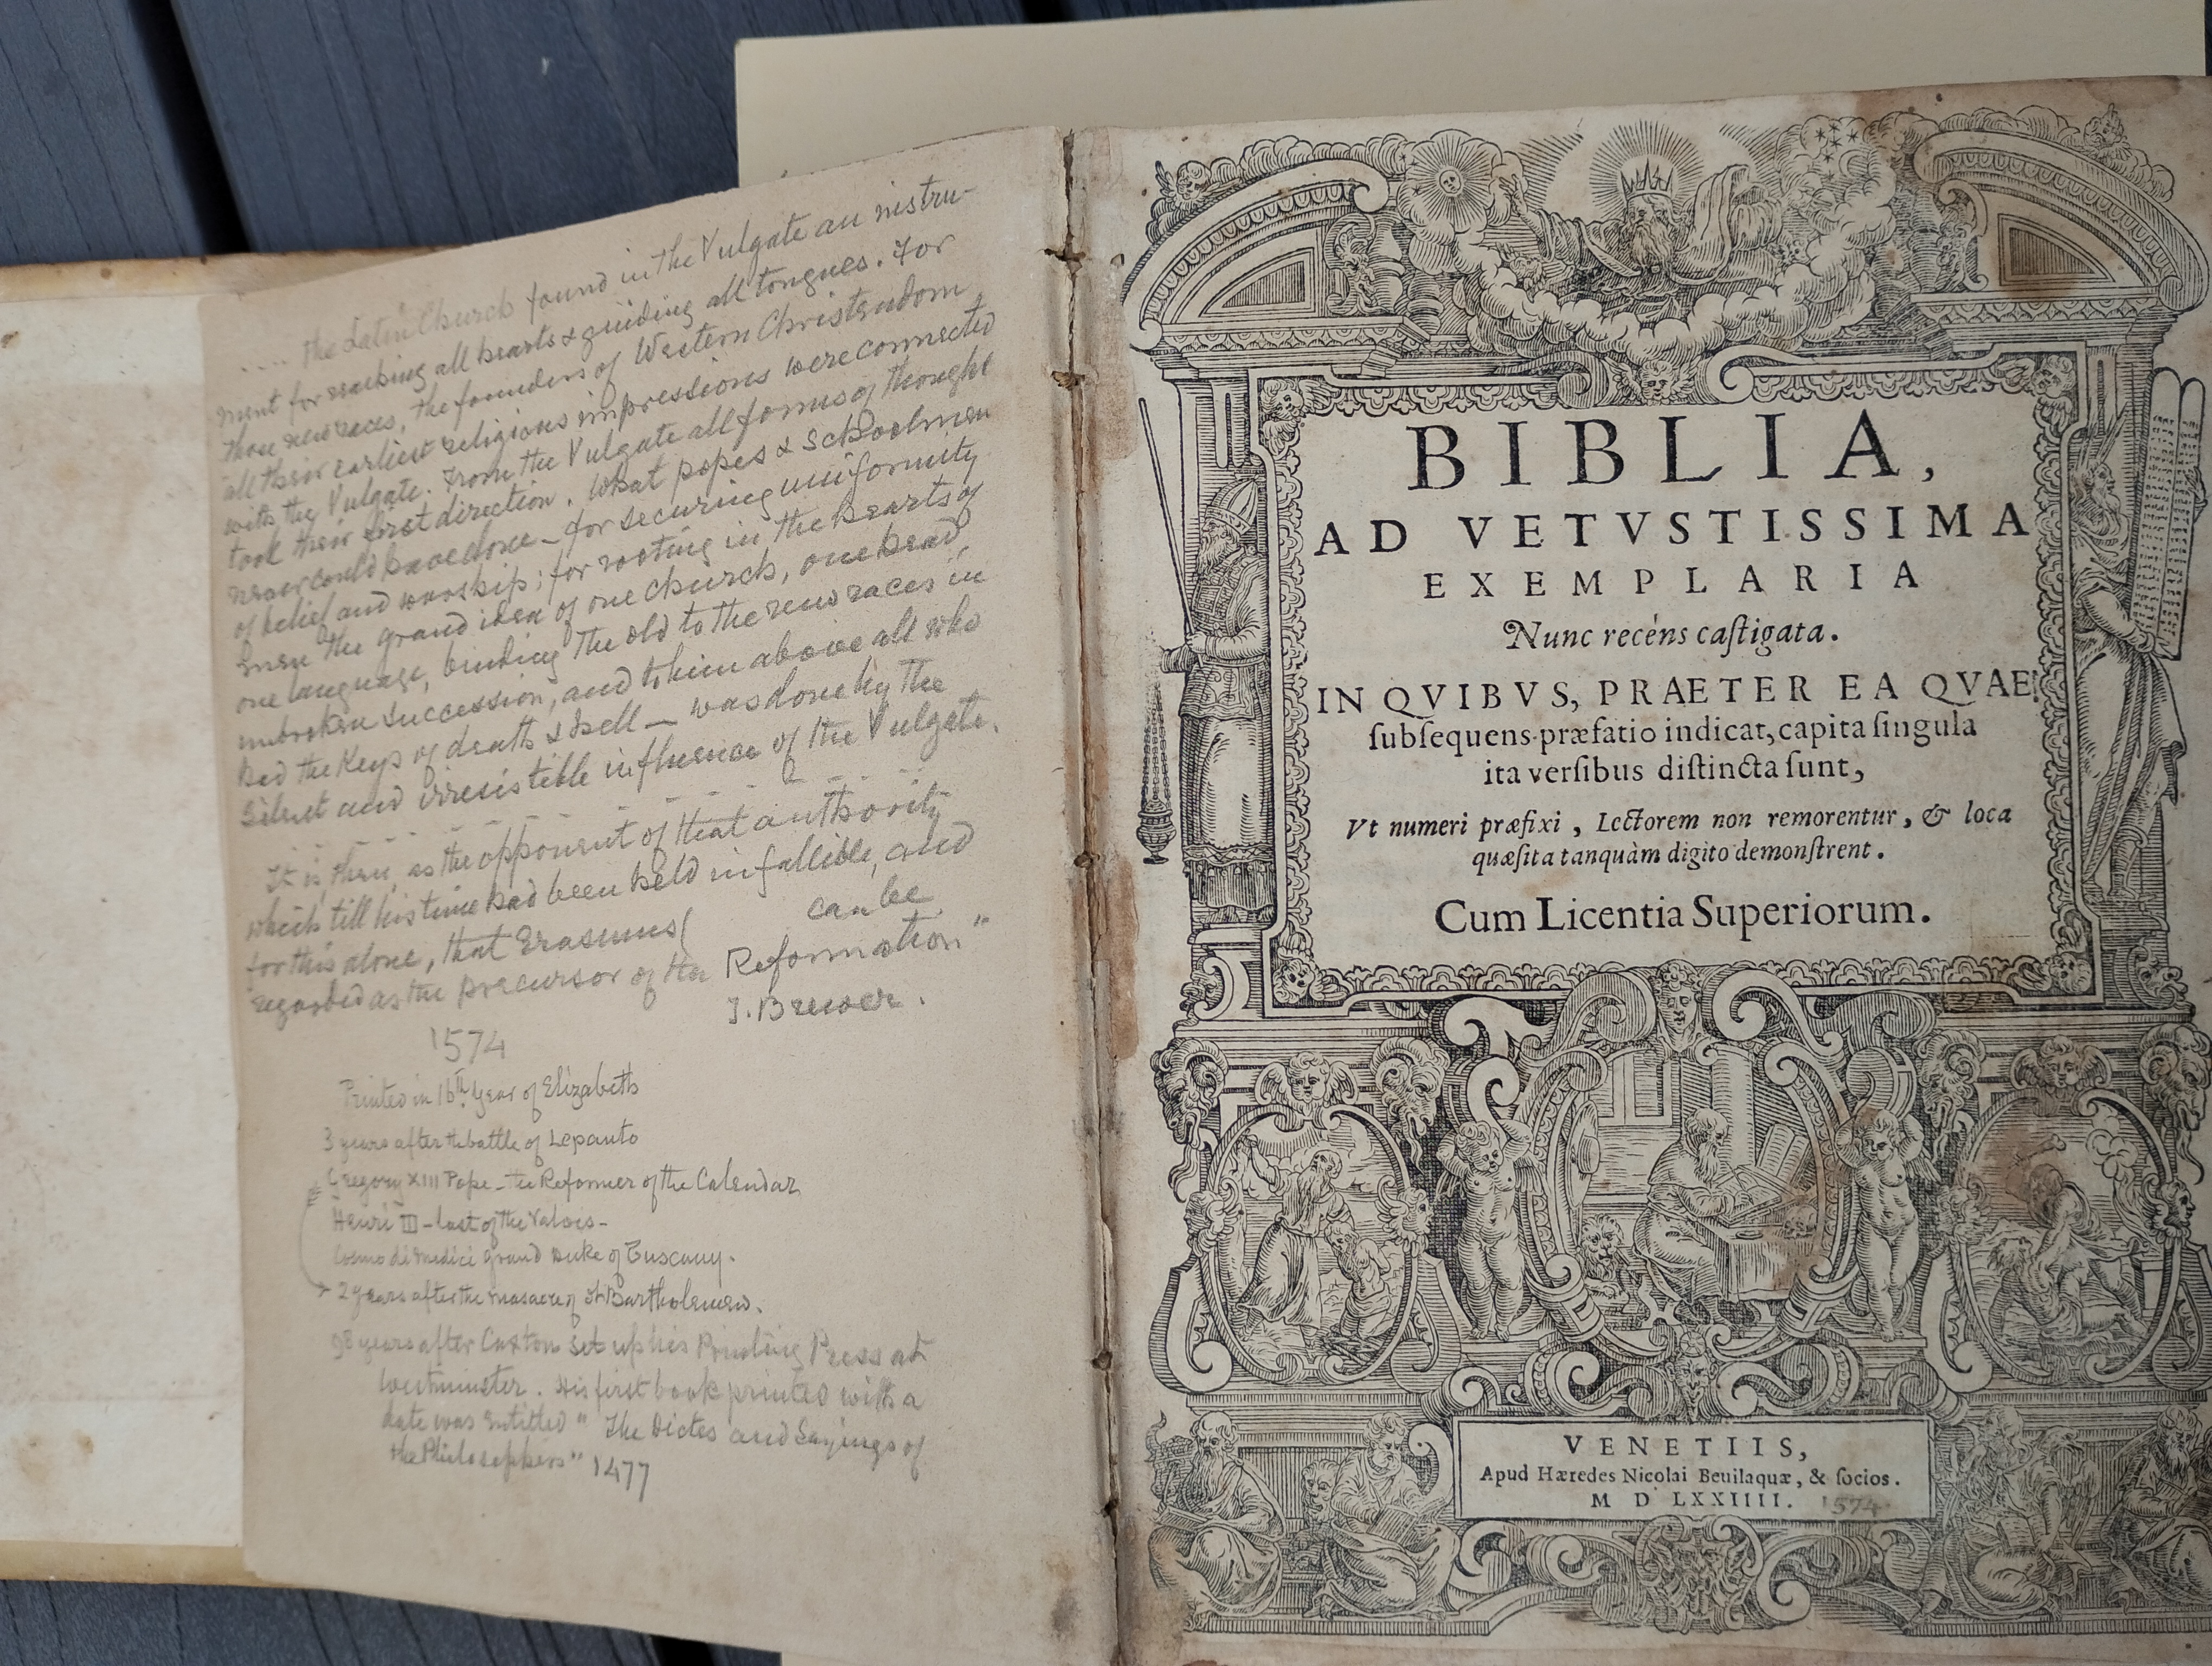 .... The Latin Church found in the Vulgate an instru-
ment for reaching all hearts & guiding all tongues. For
those new races, the founders of Western Christendom
all their earliest religious impressions were connected
with the Vulgate. From the Vulgate all forms of thought
took their first direction. What popes & Schoolmen
never could have done – for securing uniformity
of belief and worship; for rooting in the hearts of
men the grand idea of one church, one head,
one language, binding the old to the new races in
unbroken succession, and to him above all who
had the Keys of death & hell – was done by the
silent and irresistible influence of the Vulgate.
It is, then, as the opponent of that authority
which till his time had been held infallible, and
for this alone, that Erasmus( can be
regarded as the precursor of the Reformation"
J. Brewer.
1574
Printed in 16th year of Elizabeth
3 years after the battle of Lepanto
Gregory XIII Pope – the Reformer of the Calendar
Henri III – last of the Valois –
Cosmo di Medici Grand Duke of Tuscany.
2 years after the massacre of St Bartholemew.
98 years after Caxton set up his Printing Press at
Westminster. His first book printed with a
date was entitled "The Dictes and Sayings of
the Philosophers" 1477
BIBLIA,
AD VETVSTISSIMA
EXEMPLARIA
Nunc recèns caſtigata.
IN QVIBVS, PRAETER EA QVAE
ſubſequens præfatio indicat, capita ſingula
ita verſibus diſtincta ſunt,
Vt numeri præfixi, Lectorem non remorentur, & loca
quæſita tanquàm digito demonſtrent.
Cum Licentia Superiorum.
VENETIIS,
Apud Hæredes Nicolai Beuilaquæ, & ſocios.
M D LXXIIII. 1574